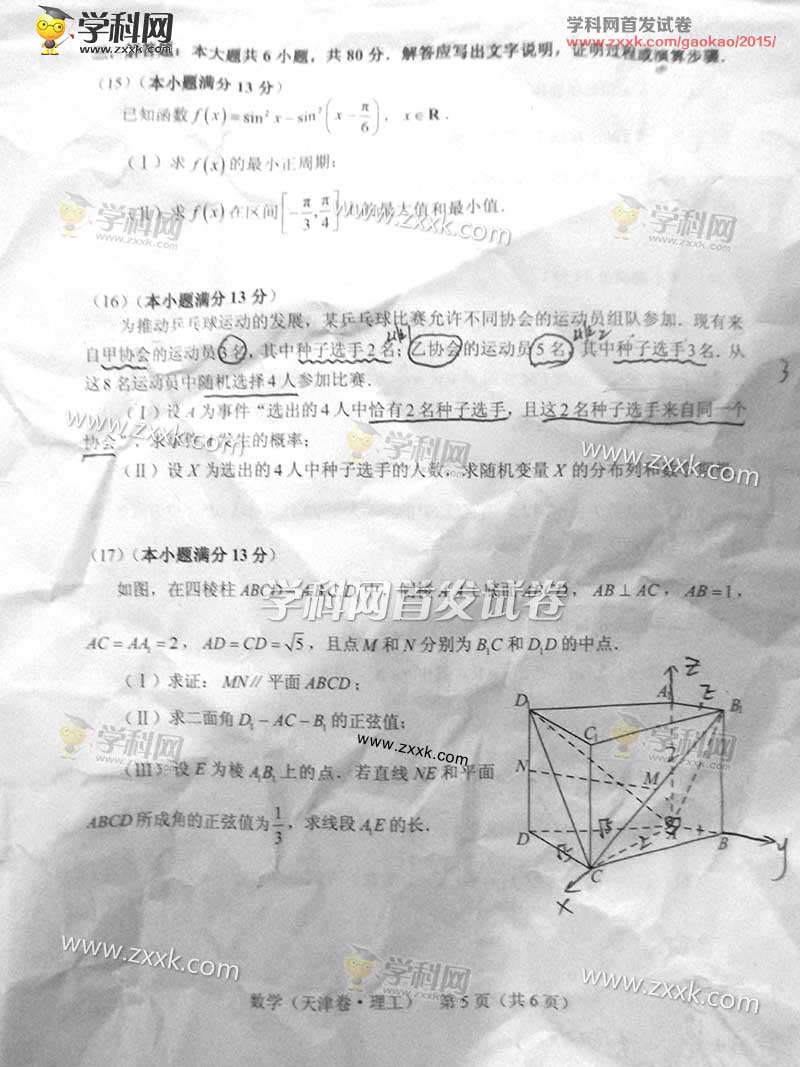 学科网
www.zxxk.com
学科网首发试卷
www.zxxk.com/gaokao/2015/
本大题共 6 小题，共 80 分．解答应写出文字说明，证明过程或演算步骤．
(15)（本小题满分 13 分）
已知函数 f(x)=sin² x−sin²(x−π/6)，x∈R．
（Ⅰ）求 f(x) 的最小正周期；
（Ⅱ）求 f(x) 在区间[−π/3,π/4]内的最大值和最小值．
学科网
www.zxxk.com
学科网
www.zxxk.com
(16)（本小题满分 13 分）
为推动乒乓球运动的发展，某乒乓球比赛允许不同协会的运动员组队参加．现有来
自甲协会的运动员 3 名，其中种子选手 2 名；乙协会的运动员 5 名，其中种子选手 3 名．从
3
这 8 名运动员中随机选择 4 人参加比赛．
（Ⅰ）设 A 为事件“选出的 4 人中恰有 2 名种子选手，且这 2 名种子选手来自同一个
协会”，求事件 A 发生的概率；
www.zxxk.com
学科网
www.zxxk.com
（Ⅱ）设 X 为选出的 4 人中种子选手的人数，求随机变量 X 的分布列和数学期望．
www.zxxk.com
(17)（本小题满分 13 分）
学科网首发试卷
如图，在四棱柱 ABCD 中，AB⊥AC，AB=1，
AC=AA₁=2，AD=CD=√5，且点 M 和 N 分别为 B₁C 和 D₁D 的中点．
（Ⅰ）求证：MN∥平面 ABCD；
（Ⅱ）求二面角 D₁−AC−B₁ 的正弦值；
学科网
www.zxxk.com
www.zxxk.com
（Ⅲ）设 E 为棱 A₁B₁ 上的点．若直线 NE 和平面
ABCD 所成角的正弦值为 1/3，求线段 A₁E 的长．
z
D₁ A₁ z B₁
C₁
2
N M
D √5 A 1 B
√5 2 y
C
x
学科网
www.zxxk.com
www.zxxk.com
学科网
www.zxxk.com
www.zxxk.com
数学（天津卷·理工） 第 5 页（共 6 页）